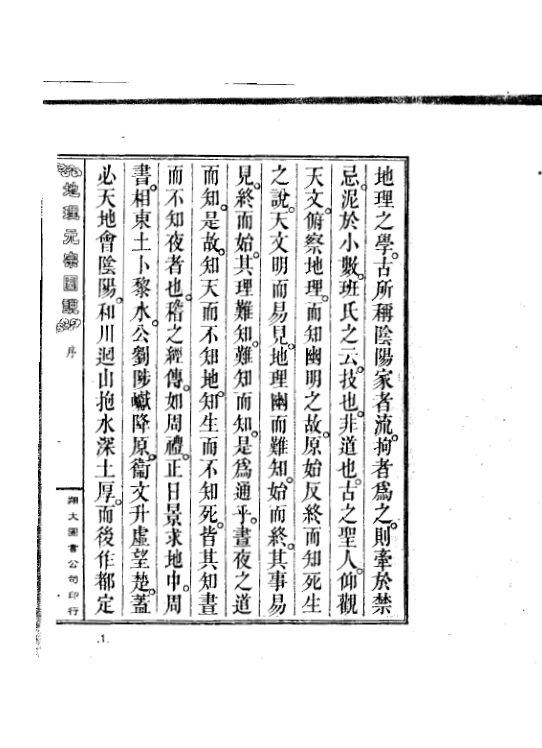 地理之學。古所稱陰陽家者流。拘者爲之。則牽於禁
忌。泥於小數。班氏之云。技也。非道也。古之聖人。仰觀
天文。俯察地理。而知幽明之故。原始反終。而知死生
之說。天文明而易見。地理幽而難知。始而終。其事易
見。終而始。其理難知。難知而知。是爲通乎。晝夜之道
而知。是故。知天而不知地。知生而不知死。皆其知晝
而不知夜者也。稽之經傳。如周禮。正日景求地中。周
書。相東土卜黎水。公劉陟巘降原。衞文升虛望楚。蓋
必天地會陰陽。和川迴山抱水深土厚。而後作都定
地理元宗圖說
序
翔大圖書公司印行
.1.